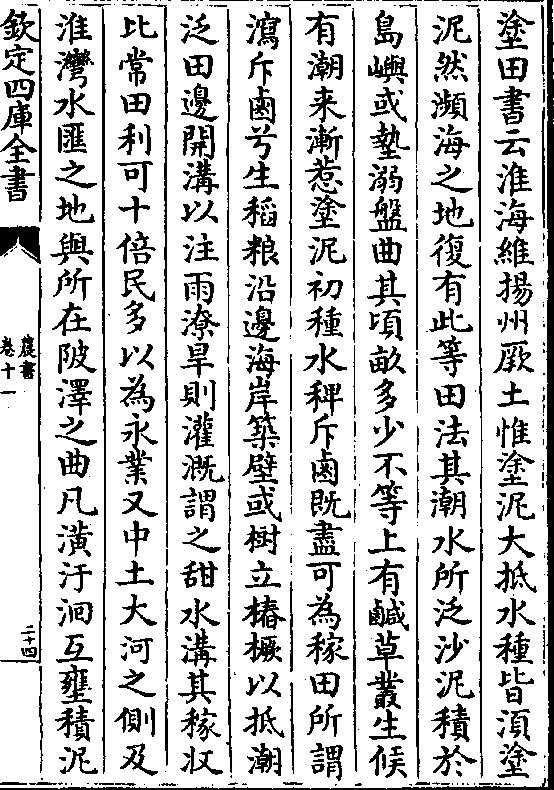 塗田書云淮海維揚州厥土惟塗泥大抵水種皆須塗
泥然瀕海之地復有此等田法其潮水所泛沙泥積於
島嶼或墊溺盤曲其頃畝多少不等上有鹹草叢生候
有潮来漸惹塗泥初種水稗斥鹵既盡可為稼田所謂
瀉斥鹵兮生稻粮沿邊海岸築壁或樹立樁橛以抵潮
泛田邊開溝以注雨潦旱則灌溉謂之甜水溝其稼収
比常田利可十倍民多以為永業又中土大河之側及
淮灣水匯之地與所在陂澤之曲凡潢汙洄互壅積泥
欽定四庫全書
農書
卷十一
二十四